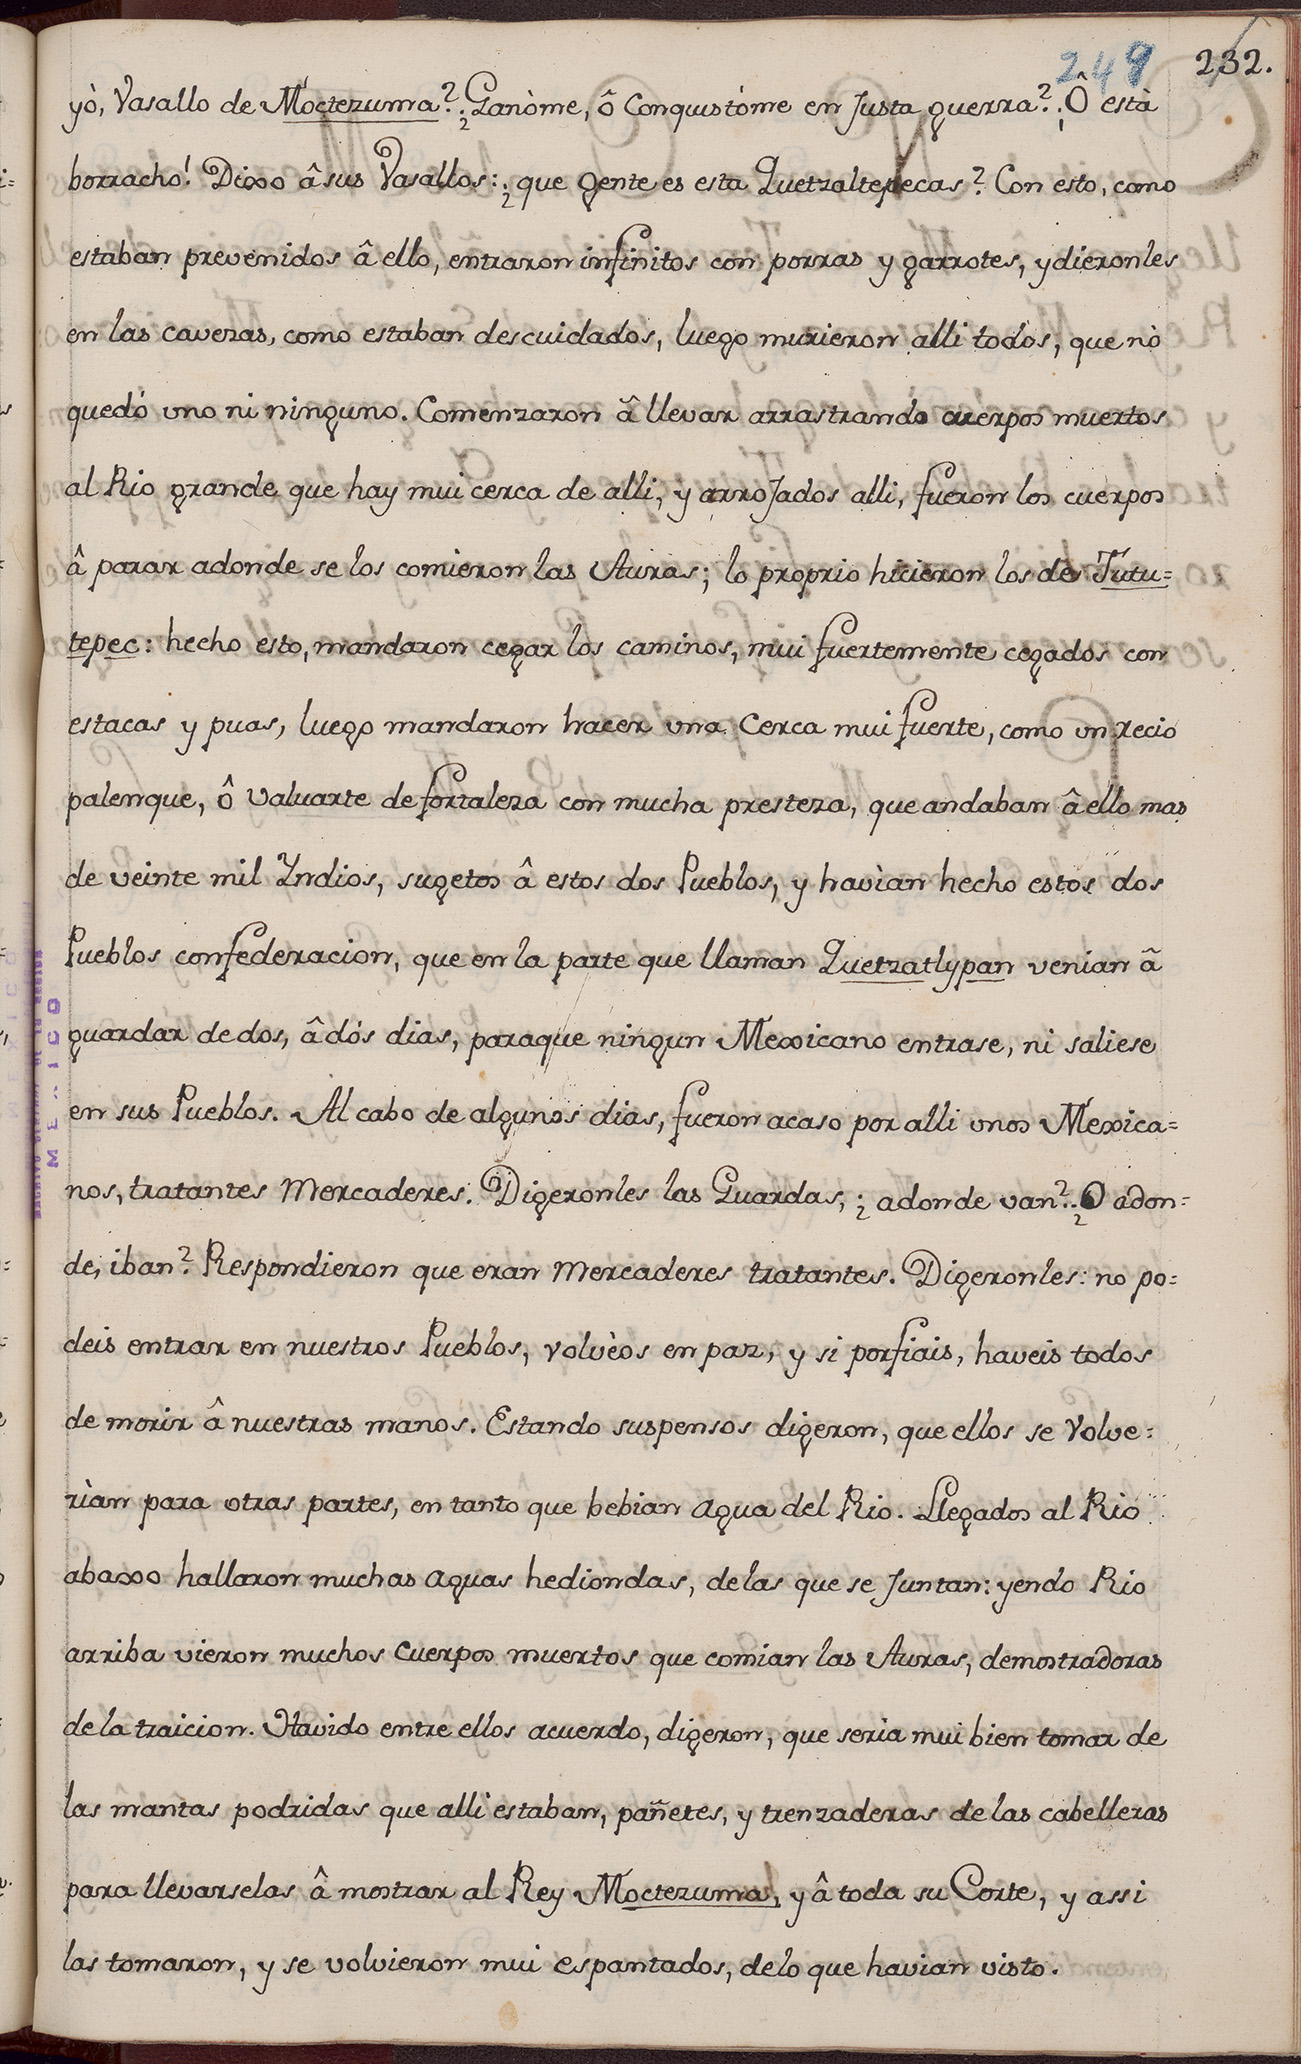 249 232.
yò, Vasallo de Moctezuma? ¿Ganòme, ô Conquistóme en Justa guerra? ¡Ô està
borracho! Dixo â sus Vasallos: ¿que gente es esta Quetzaltepecas? Con esto, como
estaban prevenidos â ello, entraron infinitos con porras y garrotes, y dieronles
en las cavezas, como estaban descuidados, luego murieron alli todos, que nò
quedó uno ni ninguno. Comenzaron â llevar arrastrando cuerpos muertos
al Rio grande que hay mui cerca de alli, y arroJados alli, fueron los cuerpos
â parar adonde se los comieron las Auras; lo proprio hicieron los de Tutu=
tepec: hecho esto, mandaron cegar los caminos, mui fuertemente cegados con
estacas y puas, luego mandaron hacer una Cerca mui fuerte, como un recio
palenque, ô Valuarte de fortaleza con mucha presteza, que andaban â ello mas
de veinte mil Yndios, sugetos â estos dos Pueblos, y havìan hecho estos dos
Pueblos confederacion, que en la parte que llaman Quetzatlypan venian â
guardar de dos, â dós dias, paraque ningun Mexicano entrase, ni saliese
en sus Pueblos. Al cabo de algunos dias, fueron acaso por alli unos Mexica=
nos, tratantes Mercaderes. Digeronles las Guardas, ¿adonde van? ¿O adon=
de, iban? Respondieron que eran Mercaderes tratantes. Digeronles: no po=
deis entrar en nuestros Pueblos, volvèos en paz, y si porfiais, haveis todos
de morir â nuestras manos. Estando suspensos digeron, que ellos se Volve=
rìan para otras partes, en tanto que bebian agua del Rio. Llegados al Rio
abaxo hallaron muchas aguas hediondas, de las que se Juntan: yendo Rio
arriba vieron muchos Cuerpos muertos que comian las Auras, demostradoras
de la traicion. Havido entre ellos acuerdo, digeron, que seria mui bien tomar de
las mantas podridas que allì estaban, pañetes, y trenzaderas de las cabelleras
para llevarselas â mostrar al Rey Moctezuma, y â toda su Corte, y assi
las tomaron, y se volvieron mui espantados, de lo que havian visto.
MEXICO